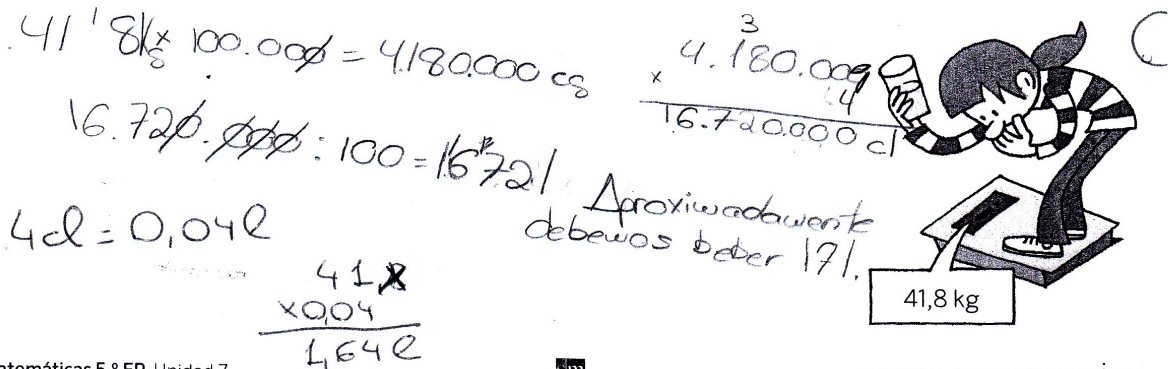 41'8 kg x 100.000 = 4.180.000 cg
3
4.180.000
x 4
16.720.000 cl
16.720.000 : 100 = 16'72 l
Aproximadamente
debemos beber 17 l.
4 cl = 0,04 l
41,8
x 0,04
1,64 l
41,8 kg
Matemáticas 5.º EP Unidad 7
sm